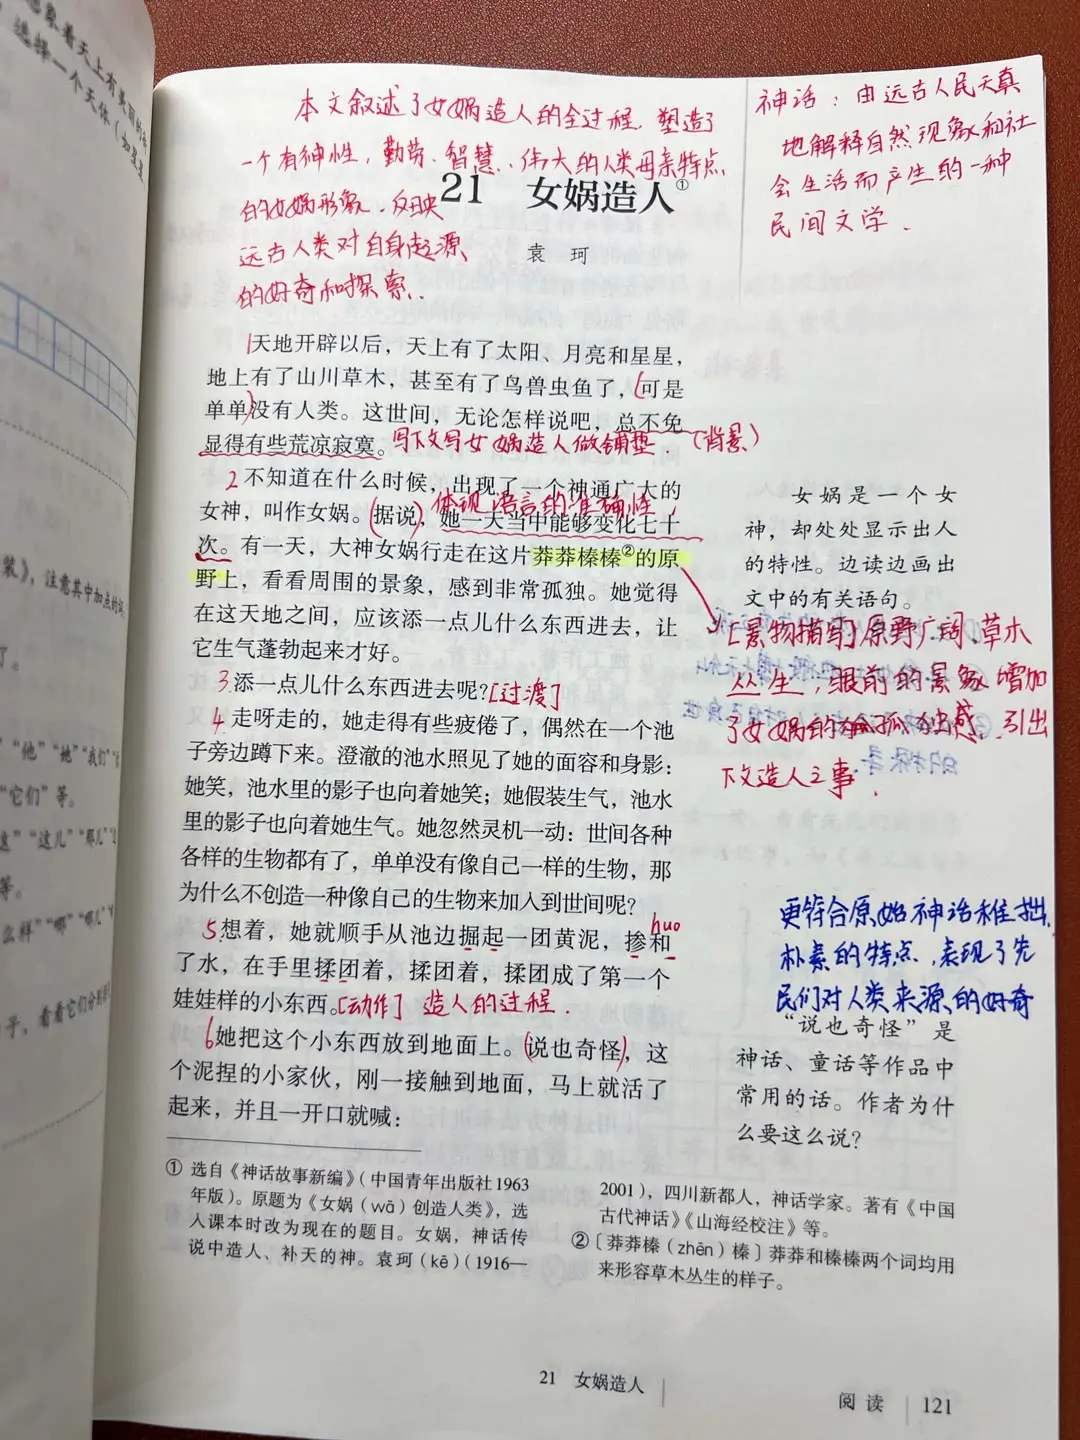 本文叙述了女娲造人的全过程，塑造了
一个有神性，勤劳、智慧、伟大的人类母亲特点
的女娲形象，反映
远古人类对自身起源
的好奇和探索．
神话：由远古人民天真
地解释自然现象和社
会生活而产生的一种
民间文学．
21 女娲造人①
袁 珂
1天地开辟以后，天上有了太阳、月亮和星星，
地上有了山川草木，甚至有了鸟兽虫鱼了，(可是
单单)没有人类。这世间，无论怎样说吧，总不免
显得有些荒凉寂寞。写下文写女娲造人做铺垫．（背景）
2 不知道在什么时候，出现了一个神通广大的
体现语言的准确性，
女神，叫作女娲。(据说)，她一天当中能够变化七十
次。有一天，大神女娲行走在这片莽莽榛榛②的原
野上，看看周围的景象，感到非常孤独。她觉得
在这天地之间，应该添一点儿什么东西进去，让
它生气蓬勃起来才好。
3.添一点儿什么东西进去呢？[过渡]
4 走呀走的，她走得有些疲倦了，偶然在一个池
子旁边蹲下来。澄澈的池水照见了她的面容和身影：
她笑，池水里的影子也向着她笑；她假装生气，池水
里的影子也向着她生气。她忽然灵机一动：世间各种
各样的生物都有了，单单没有像自己一样的生物，那
为什么不创造一种像自己的生物来加入到世间呢？
huo
5想着，她就顺手从池边掘起一团黄泥，掺和
了水，在手里揉团着，揉团着，揉团成了第一个
娃娃样的小东西。[动作] 造人的过程．
6她把这个小东西放到地面上。(说也奇怪)，这
个泥捏的小家伙，刚一接触到地面，马上就活了
起来，并且一开口就喊：
女娲是一个女
神，却处处显示出人
的特性。边读边画出
文中的有关语句。
[景物描写]原野广阔，草木
丛生，眼前的景象增加
了女娲的孤独感，引出
下文造人之事．
更符合原始神话稚拙，
朴素的特点，表现了先
民们对人类来源的好奇
“说也奇怪”是
神话、童话等作品中
常用的话。作者为什
么要这么说？
① 选自《神话故事新编》（中国青年出版社1963
年版）。原题为《女娲（wā）创造人类》，选
入课本时改为现在的题目。女娲，神话传
说中造人、补天的神。袁珂（kē）（1916—
2001），四川新都人，神话学家。著有《中国
古代神话》《山海经校注》等。
② 〔莽莽榛（zhēn）榛〕莽莽和榛榛两个词均用
来形容草木丛生的样子。
21 女娲造人
阅读 121
选择一个天体（如星星
裝》，注意其中加点的词，
了。
“他”“她”“我们”
“它们”等。
“这儿”“那儿”
等。
么样”“哪”“哪儿”
子，看看它们分别